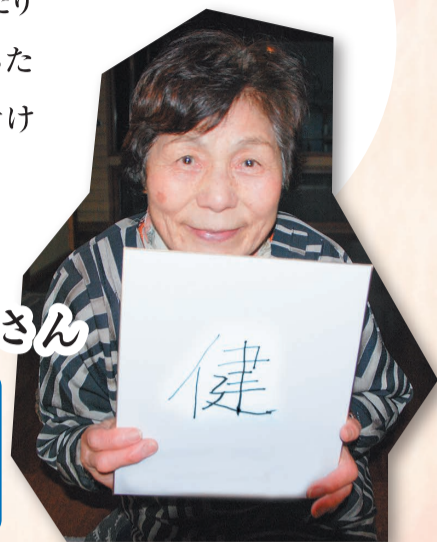 た
け
さん
健